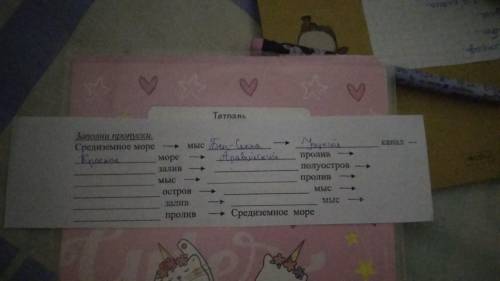 Тетрадь
Заполни пропуски.
Средиземное море → мыс Бен-Секка → канал →
Красное море → Аравийский пролив →
залив → полуостров →
мыс → пролив →
остров → мыс →
залив → мыс →
пролив → Средиземное море